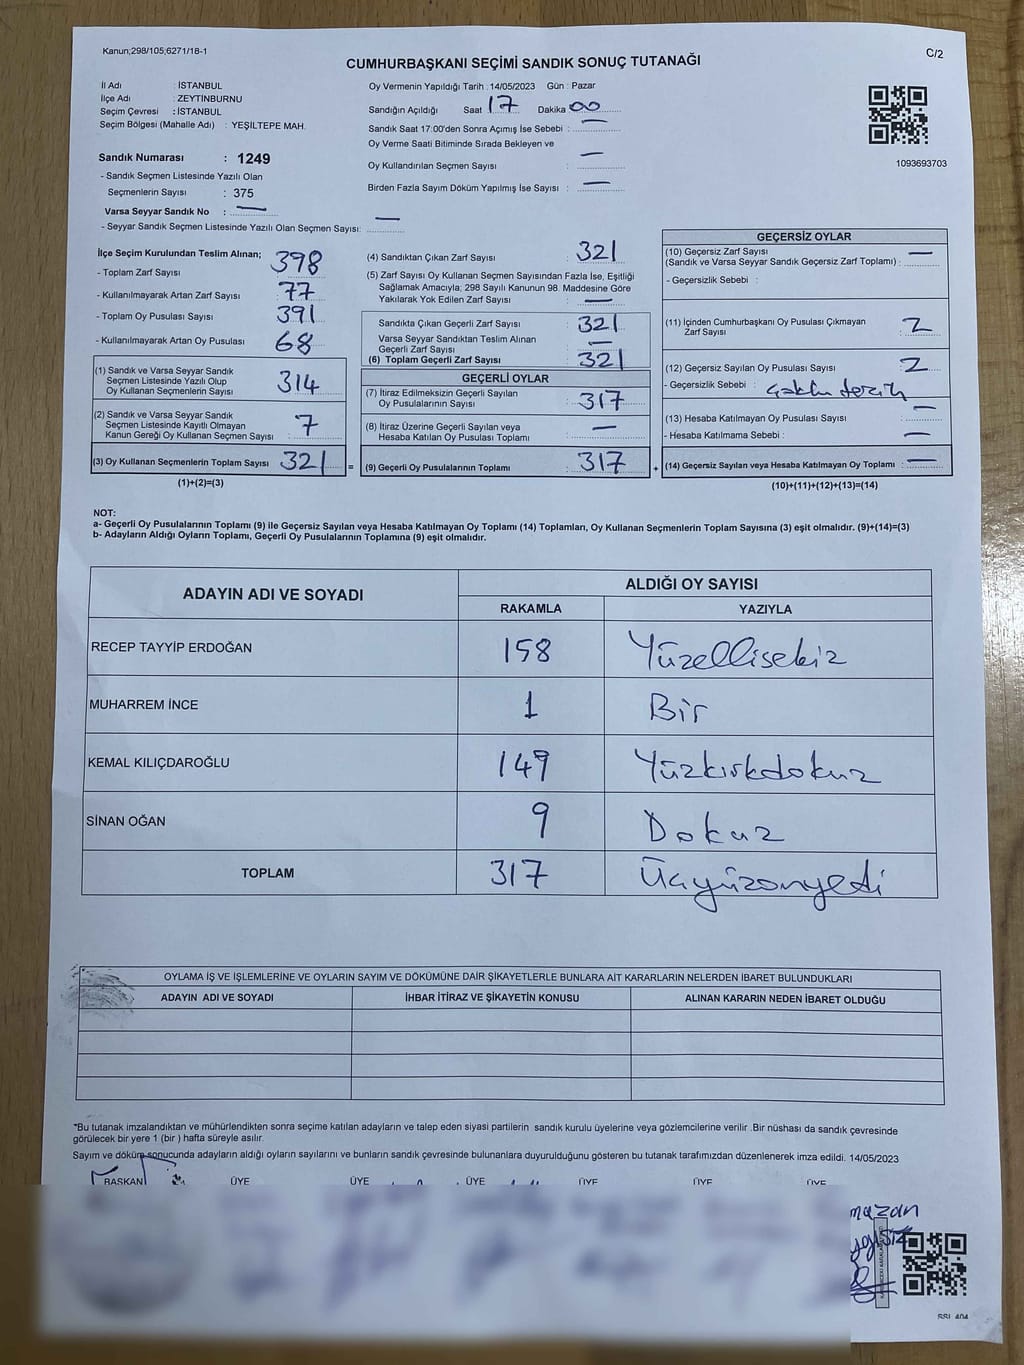 Kanun;298/105;6271/18-1
C/2
CUMHURBAŞKANI SEÇİMİ SANDIK SONUÇ TUTANAĞI
İl Adı : İSTANBUL
İlçe Adı : ZEYTİNBURNU
Seçim Çevresi : İSTANBUL
Seçim Bölgesi (Mahalle Adı) : YEŞİLTEPE MAH.
Sandık Numarası : 1249
- Sandık Seçmen Listesinde Yazılı Olan
Seçmenlerin Sayısı : 375
Varsa Seyyar Sandık No : —
- Seyyar Sandık Seçmen Listesinde Yazılı Olan Seçmen Sayısı: —
Oy Vermenin Yapıldığı Tarih : 14/05/2023 Gün : Pazar
Sandığın Açıldığı Saat 17 Dakika 00
Sandık Saat 17:00'den Sonra Açımış İse Sebebi : —
Oy Verme Saati Bitiminde Sırada Bekleyen ve
Oy Kullandırılan Seçmen Sayısı : —
Birden Fazla Sayım Döküm Yapılmış İse Sayısı : —
1093693703
İlçe Seçim Kurulundan Teslim Alınan;
- Toplam Zarf Sayısı : 398
- Kullanılmayarak Artan Zarf Sayısı : 77
- Toplam Oy Pusulası Sayısı : 391
- Kullanılmayarak Artan Oy Pusulası : 68
(1) Sandık ve Varsa Seyyar Sandık
Seçmen Listesinde Yazılı Olup
Oy Kullanan Seçmenlerin Sayısı : 314
(2) Sandık ve Varsa Seyyar Sandık
Seçmen Listesinde Kayıtlı Olmayan
Kanun Gereği Oy Kullanan Seçmen Sayısı : 7
(3) Oy Kullanan Seçmenlerin Toplam Sayısı : 321 =
(1)+(2)=(3)
(4) Sandıktan Çıkan Zarf Sayısı : 321
(5) Zarf Sayısı Oy Kullanan Seçmen Sayısından Fazla İse, Eşitliği
Sağlamak Amacıyla; 298 Sayılı Kanunun 98. Maddesine Göre
Yakılarak Yok Edilen Zarf Sayısı : —
Sandıkta Çıkan Geçerli Zarf Sayısı : 321
Varsa Seyyar Sandıktan Teslim Alınan
Geçerli Zarf Sayısı : —
(6) Toplam Geçerli Zarf Sayısı : 321
GEÇERLİ OYLAR
(7) İtiraz Edilmeksizin Geçerli Sayılan
Oy Pusulalarının Sayısı : 317
(8) İtiraz Üzerine Geçerli Sayılan veya
Hesaba Katılan Oy Pusulası Toplamı : —
(9) Geçerli Oy Pusulalarının Toplamı : 317 +
GEÇERSİZ OYLAR
(10) Geçersiz Zarf Sayısı
(Sandık ve Varsa Seyyar Sandık Geçersiz Zarf Toplamı) : —
- Geçersizlik Sebebi :
(11) İçinden Cumhurbaşkanı Oy Pusulası Çıkmayan
Zarf Sayısı : 2
(12) Geçersiz Sayılan Oy Pusulası Sayısı : 2
- Geçersizlik Sebebi : çoklu tercih
(13) Hesaba Katılmayan Oy Pusulası Sayısı : —
- Hesaba Katılmama Sebebi : —
(14) Geçersiz Sayılan veya Hesaba Katılmayan Oy Toplamı : —
(10)+(11)+(12)+(13)=(14)
NOT:
a- Geçerli Oy Pusulalarının Toplamı (9) ile Geçersiz Sayılan veya Hesaba Katılmayan Oy Toplamı (14) Toplamları, Oy Kullanan Seçmenlerin Toplam Sayısına (3) eşit olmalıdır. (9)+(14)=(3)
b- Adayların Aldığı Oyların Toplamı, Geçerli Oy Pusulalarının Toplamına (9) eşit olmalıdır.
ADAYIN ADI VE SOYADI ALDIĞI OY SAYISI
RAKAMLA YAZIYLA
RECEP TAYYİP ERDOĞAN 158 Yüzellisekiz
MUHARREM İNCE 1 Bir
KEMAL KILIÇDAROĞLU 149 Yüzkırkdokuz
SİNAN OĞAN 9 Dokuz
TOPLAM 317 Üçyüzonyedi
OYLAMA İŞ VE İŞLEMLERİNE VE OYLARIN SAYIM VE DÖKÜMÜNE DAİR ŞİKAYETLERLE BUNLARA AİT KARARLARIN NELERDEN İBARET BULUNDUKLARI
ADAYIN ADI VE SOYADI İHBAR İTİRAZ VE ŞİKAYETİN KONUSU ALINAN KARARIN NEDEN İBARET OLDUĞU
*Bu tutanak imzalandıktan ve mühürlendikten sonra seçime katılan adayların ve talep eden siyasi partilerin sandık kurulu üyelerine veya gözlemcilerine verilir .Bir nüshası da sandık çevresinde
görülecek bir yere 1 (bir ) hafta süreyle asılır.
Sayım ve döküm sonucunda adayların aldığı oyların sayılarını ve bunların sandık çevresinde bulunanlara duyurulduğunu gösteren bu tutanak tarafımızdan düzenlenerek imza edildi. 14/05/2023
BAŞKAN ÜYE ÜYE ÜYE ÜYE ÜYE ÜYE
mazan